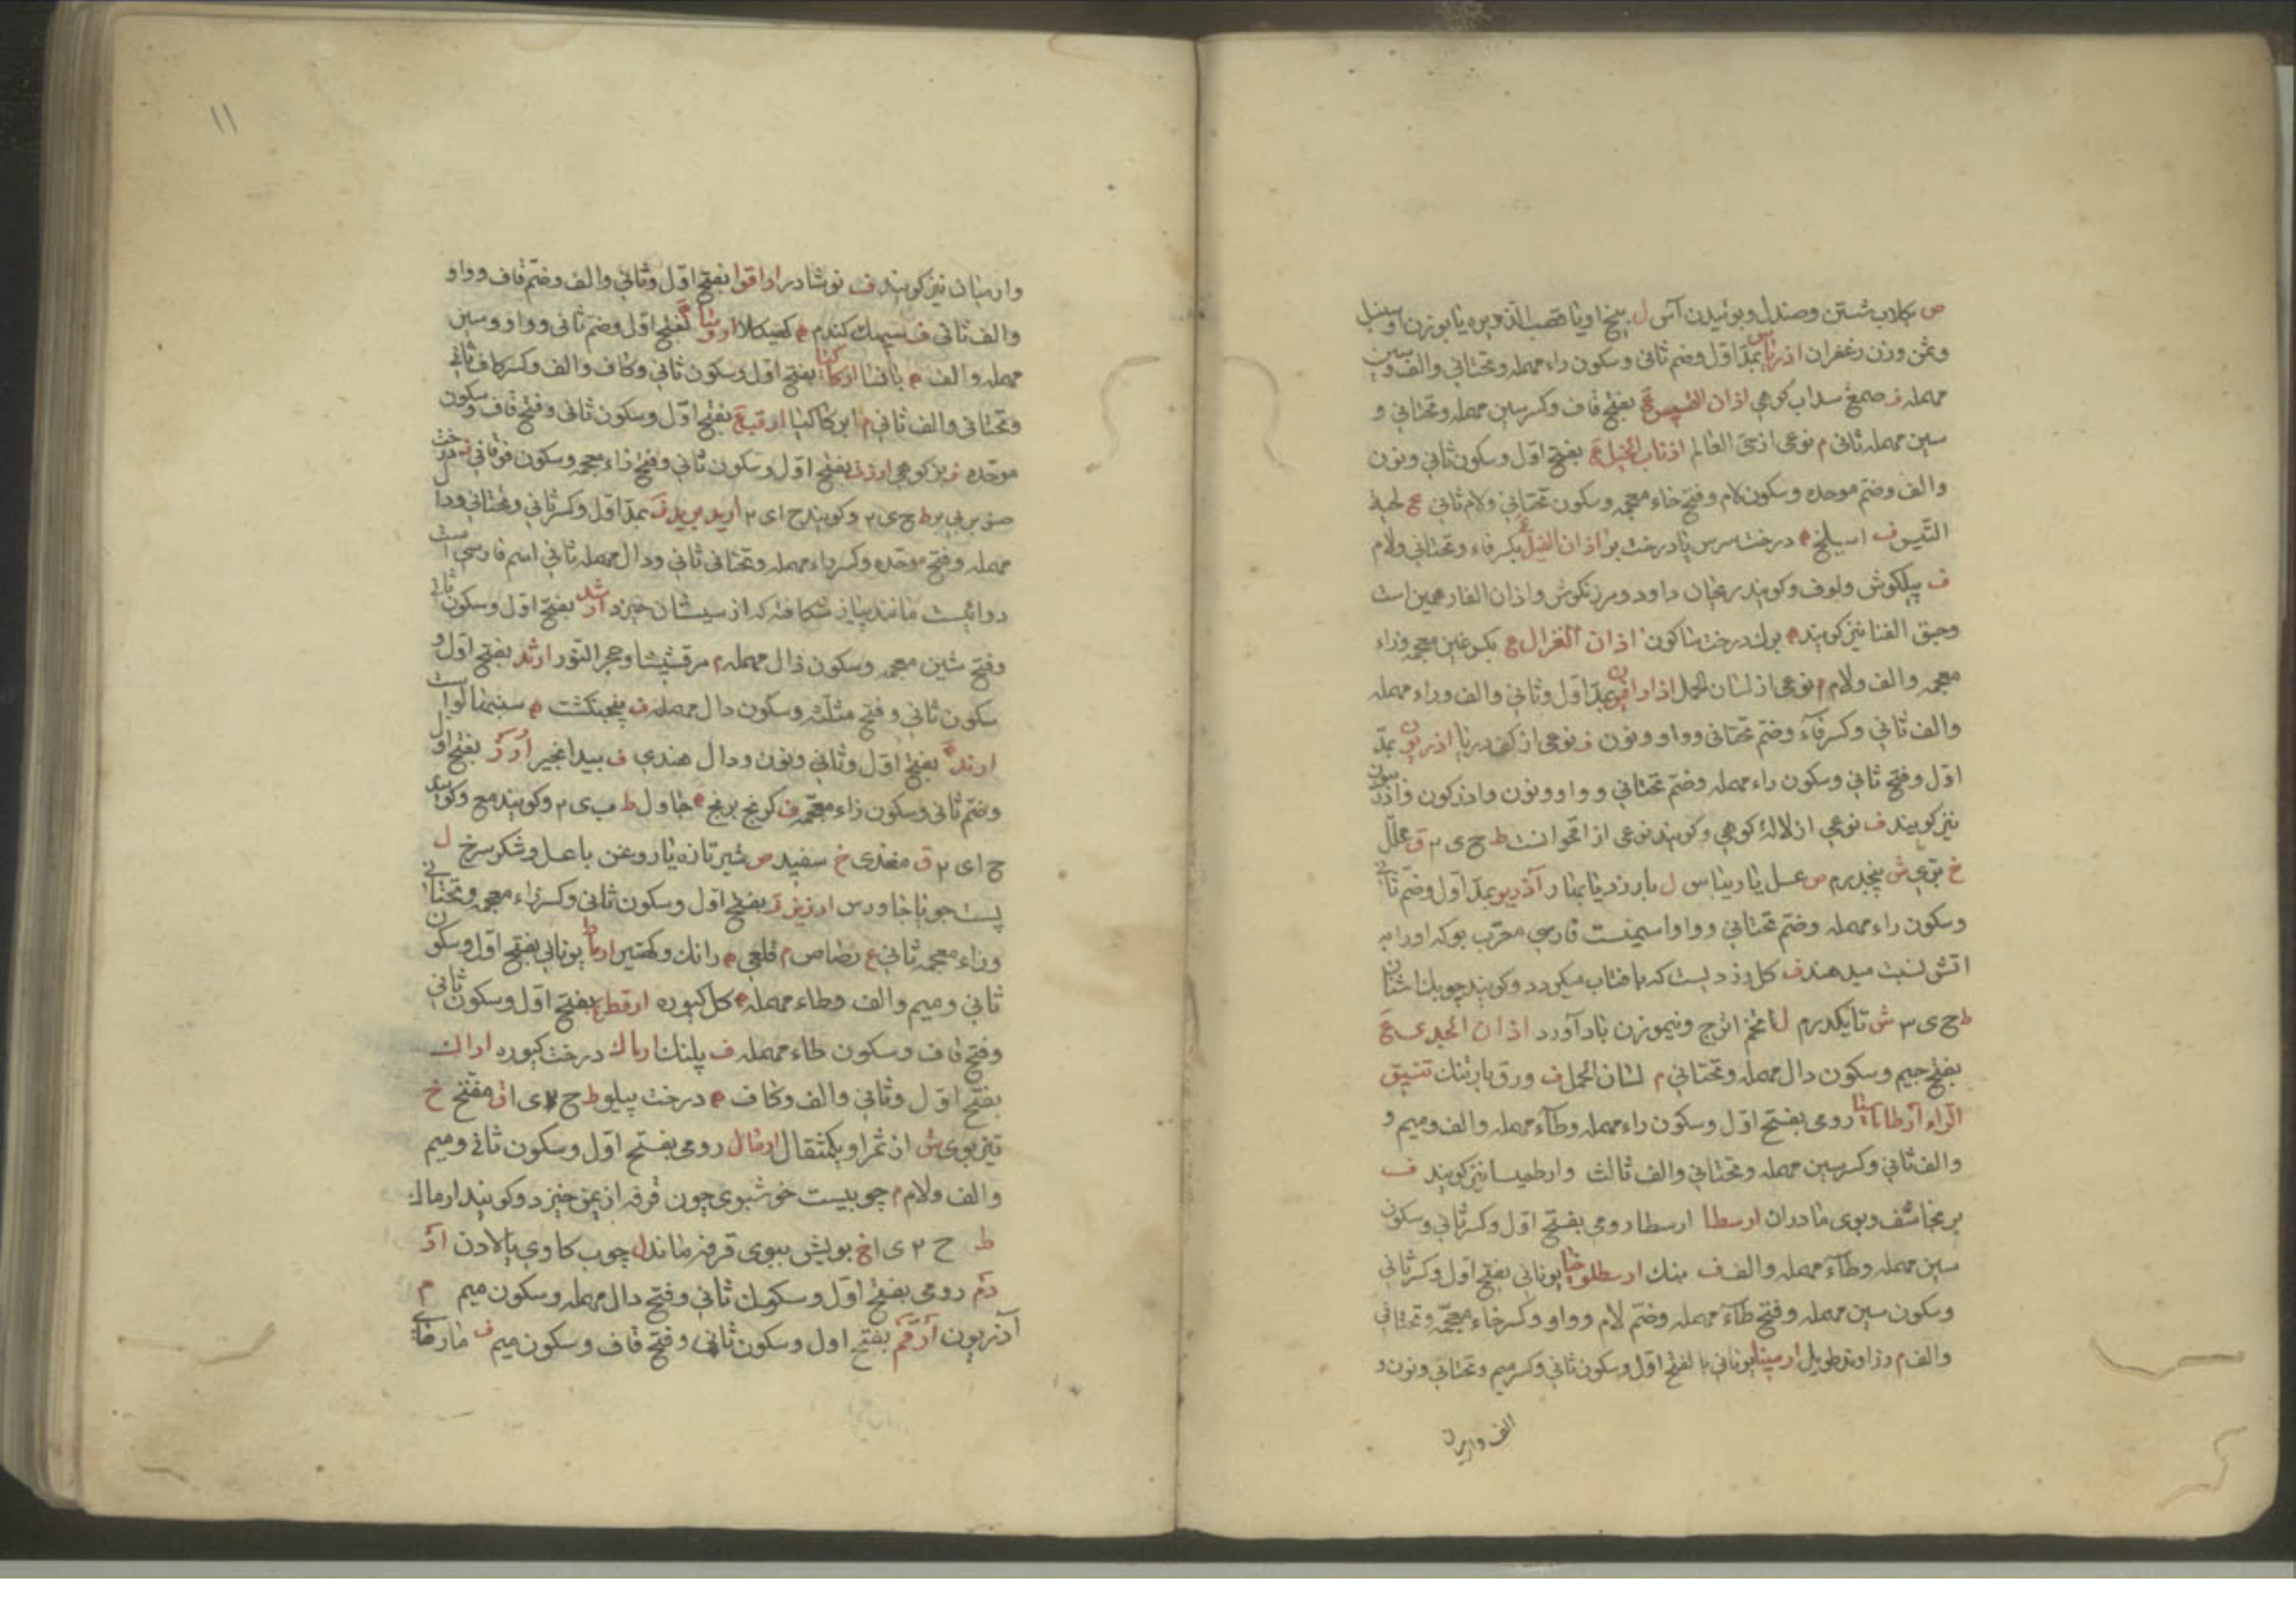 ص بکلاب شستن وصندل وبوئیدن آس ل بیخ او یا قصب الذریره یا بوزن او سنبل
وثمن وزن زعفران اذریاس بمدّ اوّل وضم ثانی وسکون راء مهمله وتحتانی والف وسین
مهمله ف صمغ سداب کوهی اذان القسیس ع بفتح قاف وکسر سین مهمله وتحتانی و
سین مهمله ثانی م نوعی از حی العالم اذناب الخیل ع بفتح اوّل وسکون ثانی ونون
والف وضم موحده وسکون لام وفتح خاء معجمه وسکون تحتانی ولام ثانی ع لحیة
التیس ف اسلیخ ه درخت سرس یا درخت بر اذان الفیل ع بکسر فاء وتحتانی ولام
ف پیلکوش ولوف وکویند رعیان داود ومرزنکوش واذان الفار همین است
وحبق الفنا نیز کویند ه بوك درخت ساکون اذان الغزال ع بکسر غین معجمه وزاء
معجمه والف ولام م نوعی از لسان الحمل اذارافیون بمدّ اوّل وثانی والف وراء مهمله
والف ثانی وکسر فاء وضم تحتانی وواو ونون ف نوعی از کف دریا اذریون بمدّ
اوّل وفتح ثانی وسکون راء مهمله وضم تحتانی وواو ونون واذرکون واذریون
نیز کویند ف نوعی از لاله کوهی وکویند نوعی از اقحوانست ط ح ی ۲ ق محلّل
خ تبوعی ش پنجدرم ص عسل یا ریباس ل بارزد یا بمنا ر آذریو بمدّ اوّل وضم ثانی
وسکون راء مهمله وضم تحتانی وواو اسمیست فارسی معرّب بو که او را به
اتش نسبت میدهند ف کل زردیست که با فتاب میکردد وکویند چوبك اشنان
ط ح ی ۳ ش تا یکدرم ل تخم اترج ونیموزن باد آورد اذان الجدی ع
بفتح جیم وسکون دال مهمله وتحتانی م لسان الحمل ف ورق بارتنك تنسیق
الراء ارطاماسیا رومی بفتح اوّل وسکون راء مهمله وطاء مهمله والف ومیم و
والف ثانی وکسر سین مهمله وتحتانی والف ثالث وارطمیسا نیز کویند ف
برنجاسف وبوی مادران ارسطا ارسطا رومی بفتح اوّل وکسر ثانی وسکون
سین مهمله وطاء مهمله والف ف بنك ارسطلوخیا یونانی بفتح اوّل وکسر ثانی
وسکون سین مهمله وفتح طاء مهمله وضم لام وواو وکسر خاء معجمه وتحتانی
والف م زراوند طویل ارمینا یونانی بالفتح اوّل وسکون ثانی وکسر میم وتحتانی ونون و
الف وارمیان
۱۱
وارمیان نیز کویند ف نوشادر اراقوا بفتح اوّل وثانی والف وضم قاف وواو
والف ثانی ف سیهك کندم ه کهیکلا اروسا ع بفتح اوّل وضم ثانی وواو وسین
مهمله والف ه بانسا ارکاکیا بفتح اوّل وسکون ثانی وکاف والف وکسر کاف ثانی
وتحتانی والف ثانی م ابن کاکیا ارقب ع بفتح اوّل وسکون ثانی وفتح قاف وسکون
موحده ف بز کوهی ارزت بفتح اوّل وسکون ثانی وفتح زاء معجمه وسکون فوقانی ف درخت
صنوبر بی بر ط ح ی ۲ وکویند ح ای ۲ ارید برید ف بمدّ اوّل وکسر ثانی وتحتانی ودال
مهمله وفتح موحده وکسر راء مهمله وتحتانی ثانی ودال مهمله ثانی اسم فارسی است
دوائیست مانند پیاز شکافته که از سیستان خیزد ارشد بفتح اوّل وسکون ثانی
وفتح شین معجمه وسکون ذال مهمله م مرقشیشا وحجر النور ارثد بفتح اوّل و
سکون ثانی وفتح مثلثه وسکون دال مهمله ف پنجنکشت ه سنبهالو است
ارند بفتح اوّل وثانی ونون ودال هندی ف بید انجیر ارز بفتح اوّل
وضم ثانی وسکون زاء معجمه ف کرنج برنج ه جاول ط ب ی ۲ وکویند مع وکویند
ح ای ۲ ق مغذی خ سفید ص شیر تازه یا روغن باعسل وشکر سرخ ل
پست جو یا جاورس ارزیز ف بفتح اوّل وسکون ثانی وکسر زاء معجمه وتحتانی
وزاء معجمه ثانی ع رصاص م قلعی ه رانك وکهتیر ارماط یونانی بفتح اوّل وسکون
ثانی ومیم والف وطاء مهمله ه کل کیوره ارقط ع بفتح اوّل وسکون ثانی
وفتح قاف وسکون طاء مهمله ف پلنك ارماك درخت کیوره اراك
بفتح اوّل وثانی والف وکاف ه درخت پیلو ط ح ۲ ی ا ق مفتح خ
تیزبوی ش از ثمر او یکمثقال ارمال رومی بفتح اوّل وسکون ثانی ومیم
والف ولام م چوبیست خوشبوی چون قرفه از یمن خیزد وکویند ارماك
ط ح ۲ ی ا خ بویش ببوی قرفه ماند ل چوب کاوی یالادن ار
دم رومی بفتح اوّل وسکون ثانی وفتح دال مهمله وسکون میم م
آذریون ارقم بفتح اول وسکون ثانی وفتح قاف وسکون میم ف مار